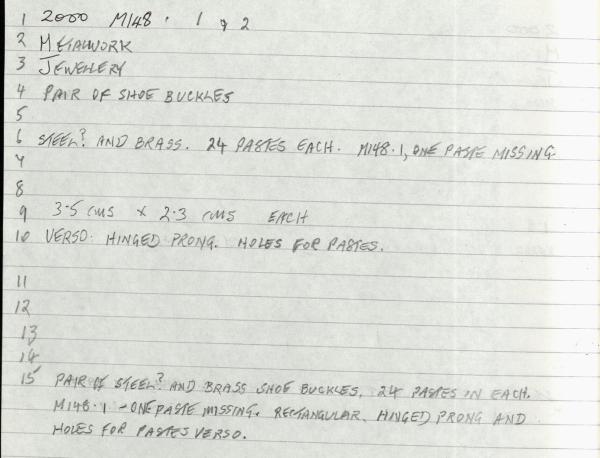 1 2000 M148 . 1 & 2
2 METALWORK
3 JEWELLERY
4 PAIR OF SHOE BUCKLES
5
6 STEEL? AND BRASS. 24 PASTES EACH. M148.1, ONE PASTE MISSING.
7
8
9 3.5 CMS X 2.3 CMS EACH
10 VERSO. HINGED PRONG. HOLES FOR PASTES.
11
12
13
14
15 PAIR OF STEEL? AND BRASS SHOE BUCKLES. 24 PASTES IN EACH.
M148.1 - ONE PASTE MISSING. RECTANGULAR. HINGED PRONG AND
HOLES FOR PASTES VERSO.